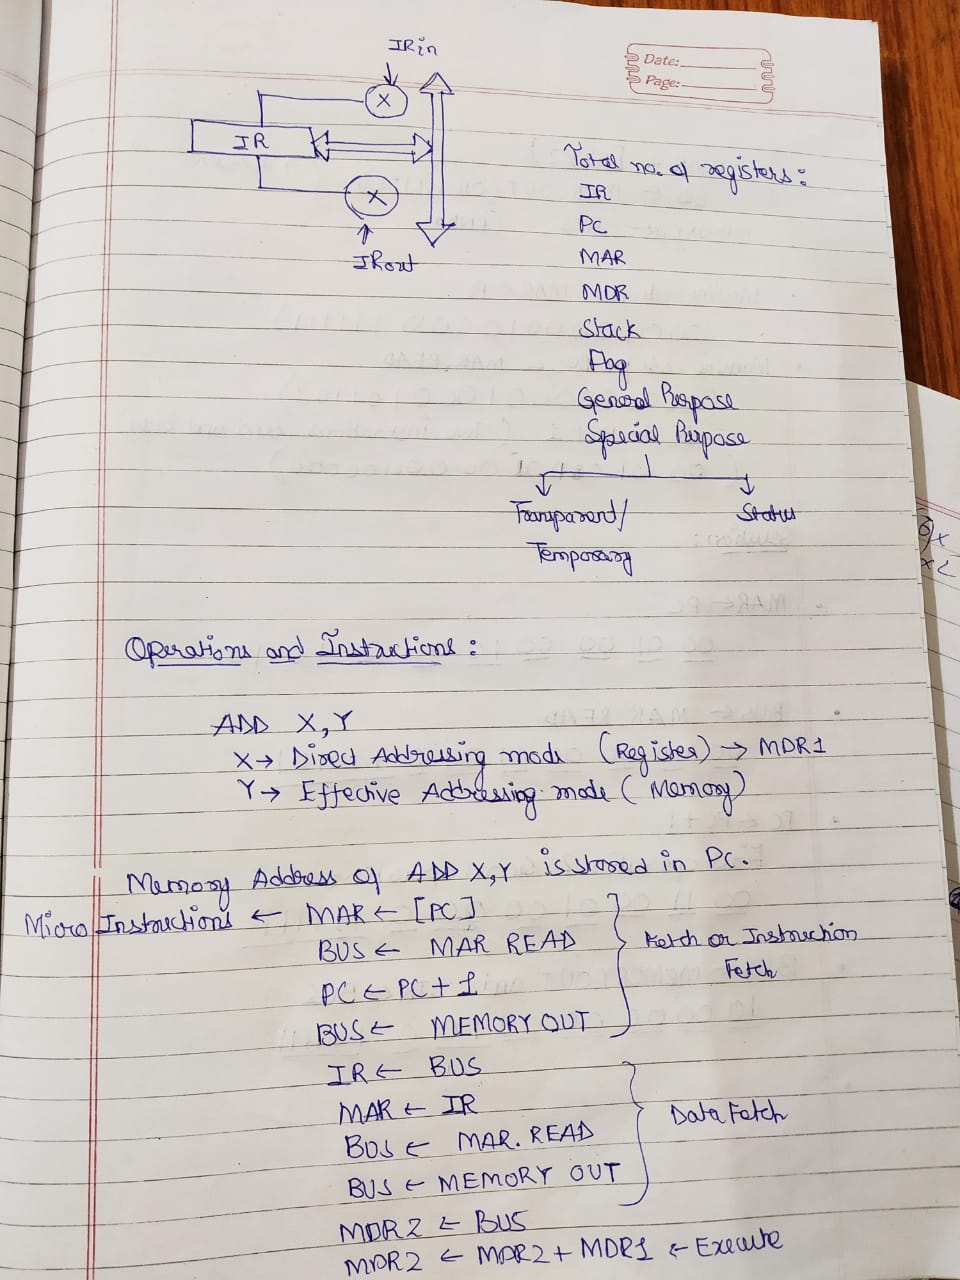 IRin
Date:
Page:
X
IR
X
IRout
Total no. of registers:
IR
PC
MAR
MDR
Stack
Flag
General Purpose
Special Purpose
Transparent/
Temporary
Status
Operations and Instructions:
ADD X,Y
X→ Direct Addressing mode (Register) → MDR1
Y→ Effective Addressing mode (Memory)
Memory Address of ADD X,Y is stored in PC.
Micro Instructions ← MAR ← [PC]
BUS ← MAR READ
Fetch or Instruction
Fetch
PC ← PC + 1
BUS ← MEMORY OUT
IR ← BUS
MAR ← IR
Data Fetch
BUS ← MAR. READ
BUS ← MEMORY OUT
MDR2 ← BUS
MDR2 ← MDR2 + MDR1 ← Execute